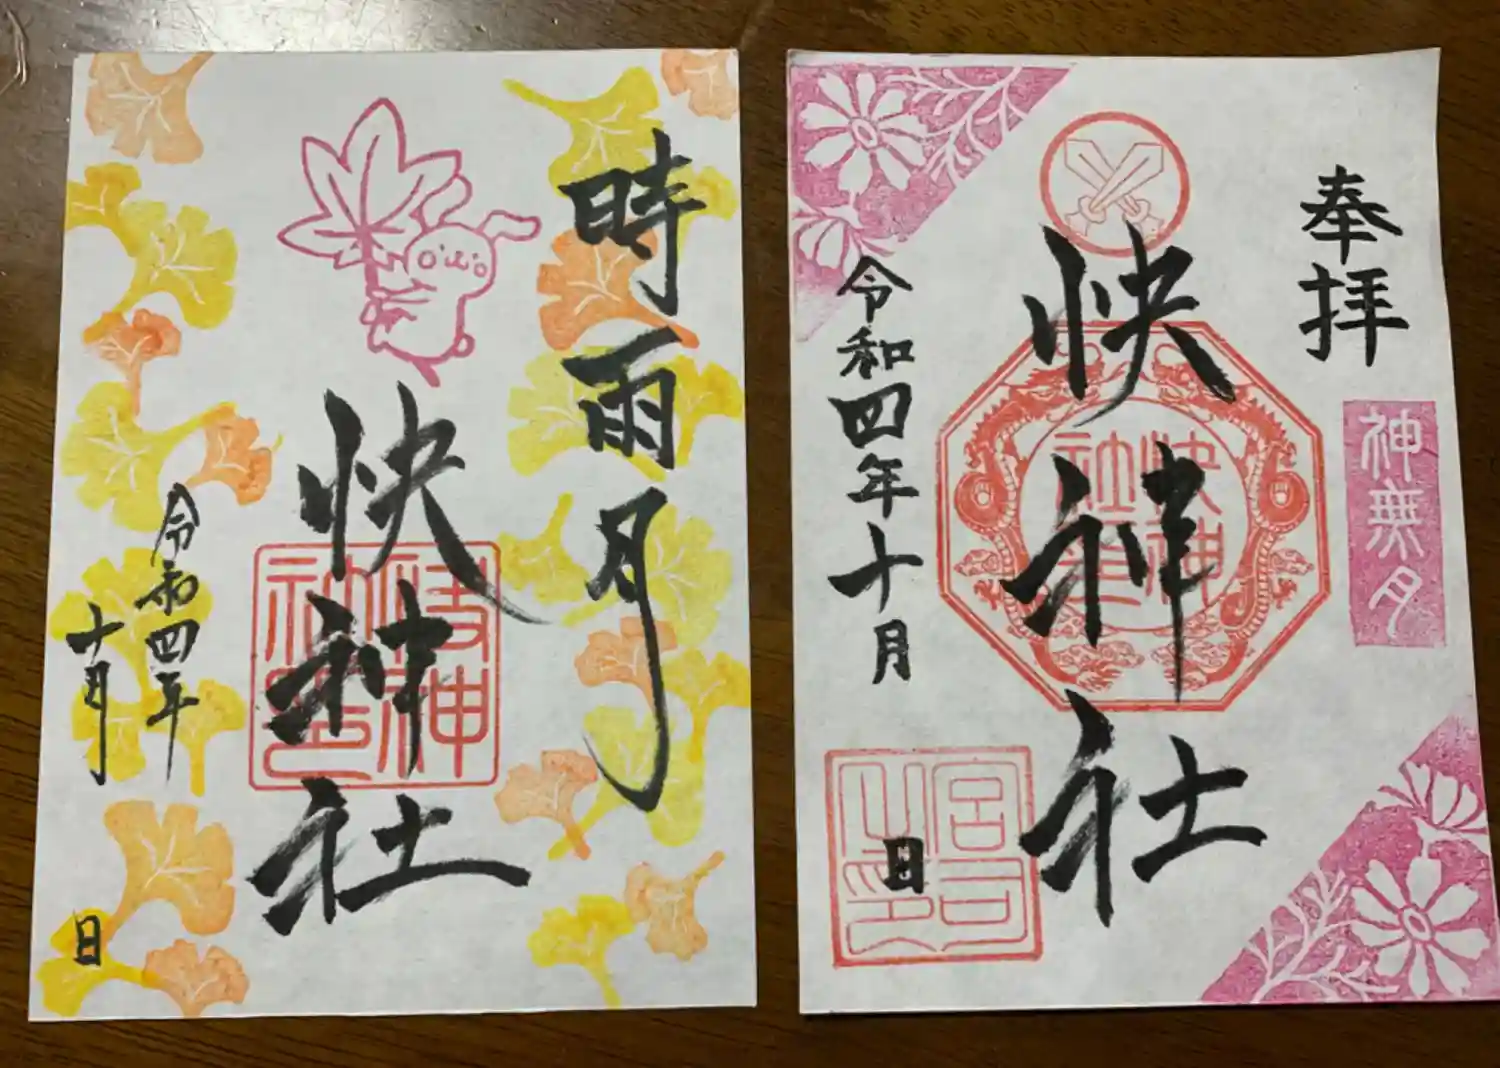 時雨月
快神社
快神社印
令和四年
十月
日
奉拝
神無月
快神社
快神社印
令和四年十月
日
宮司之印